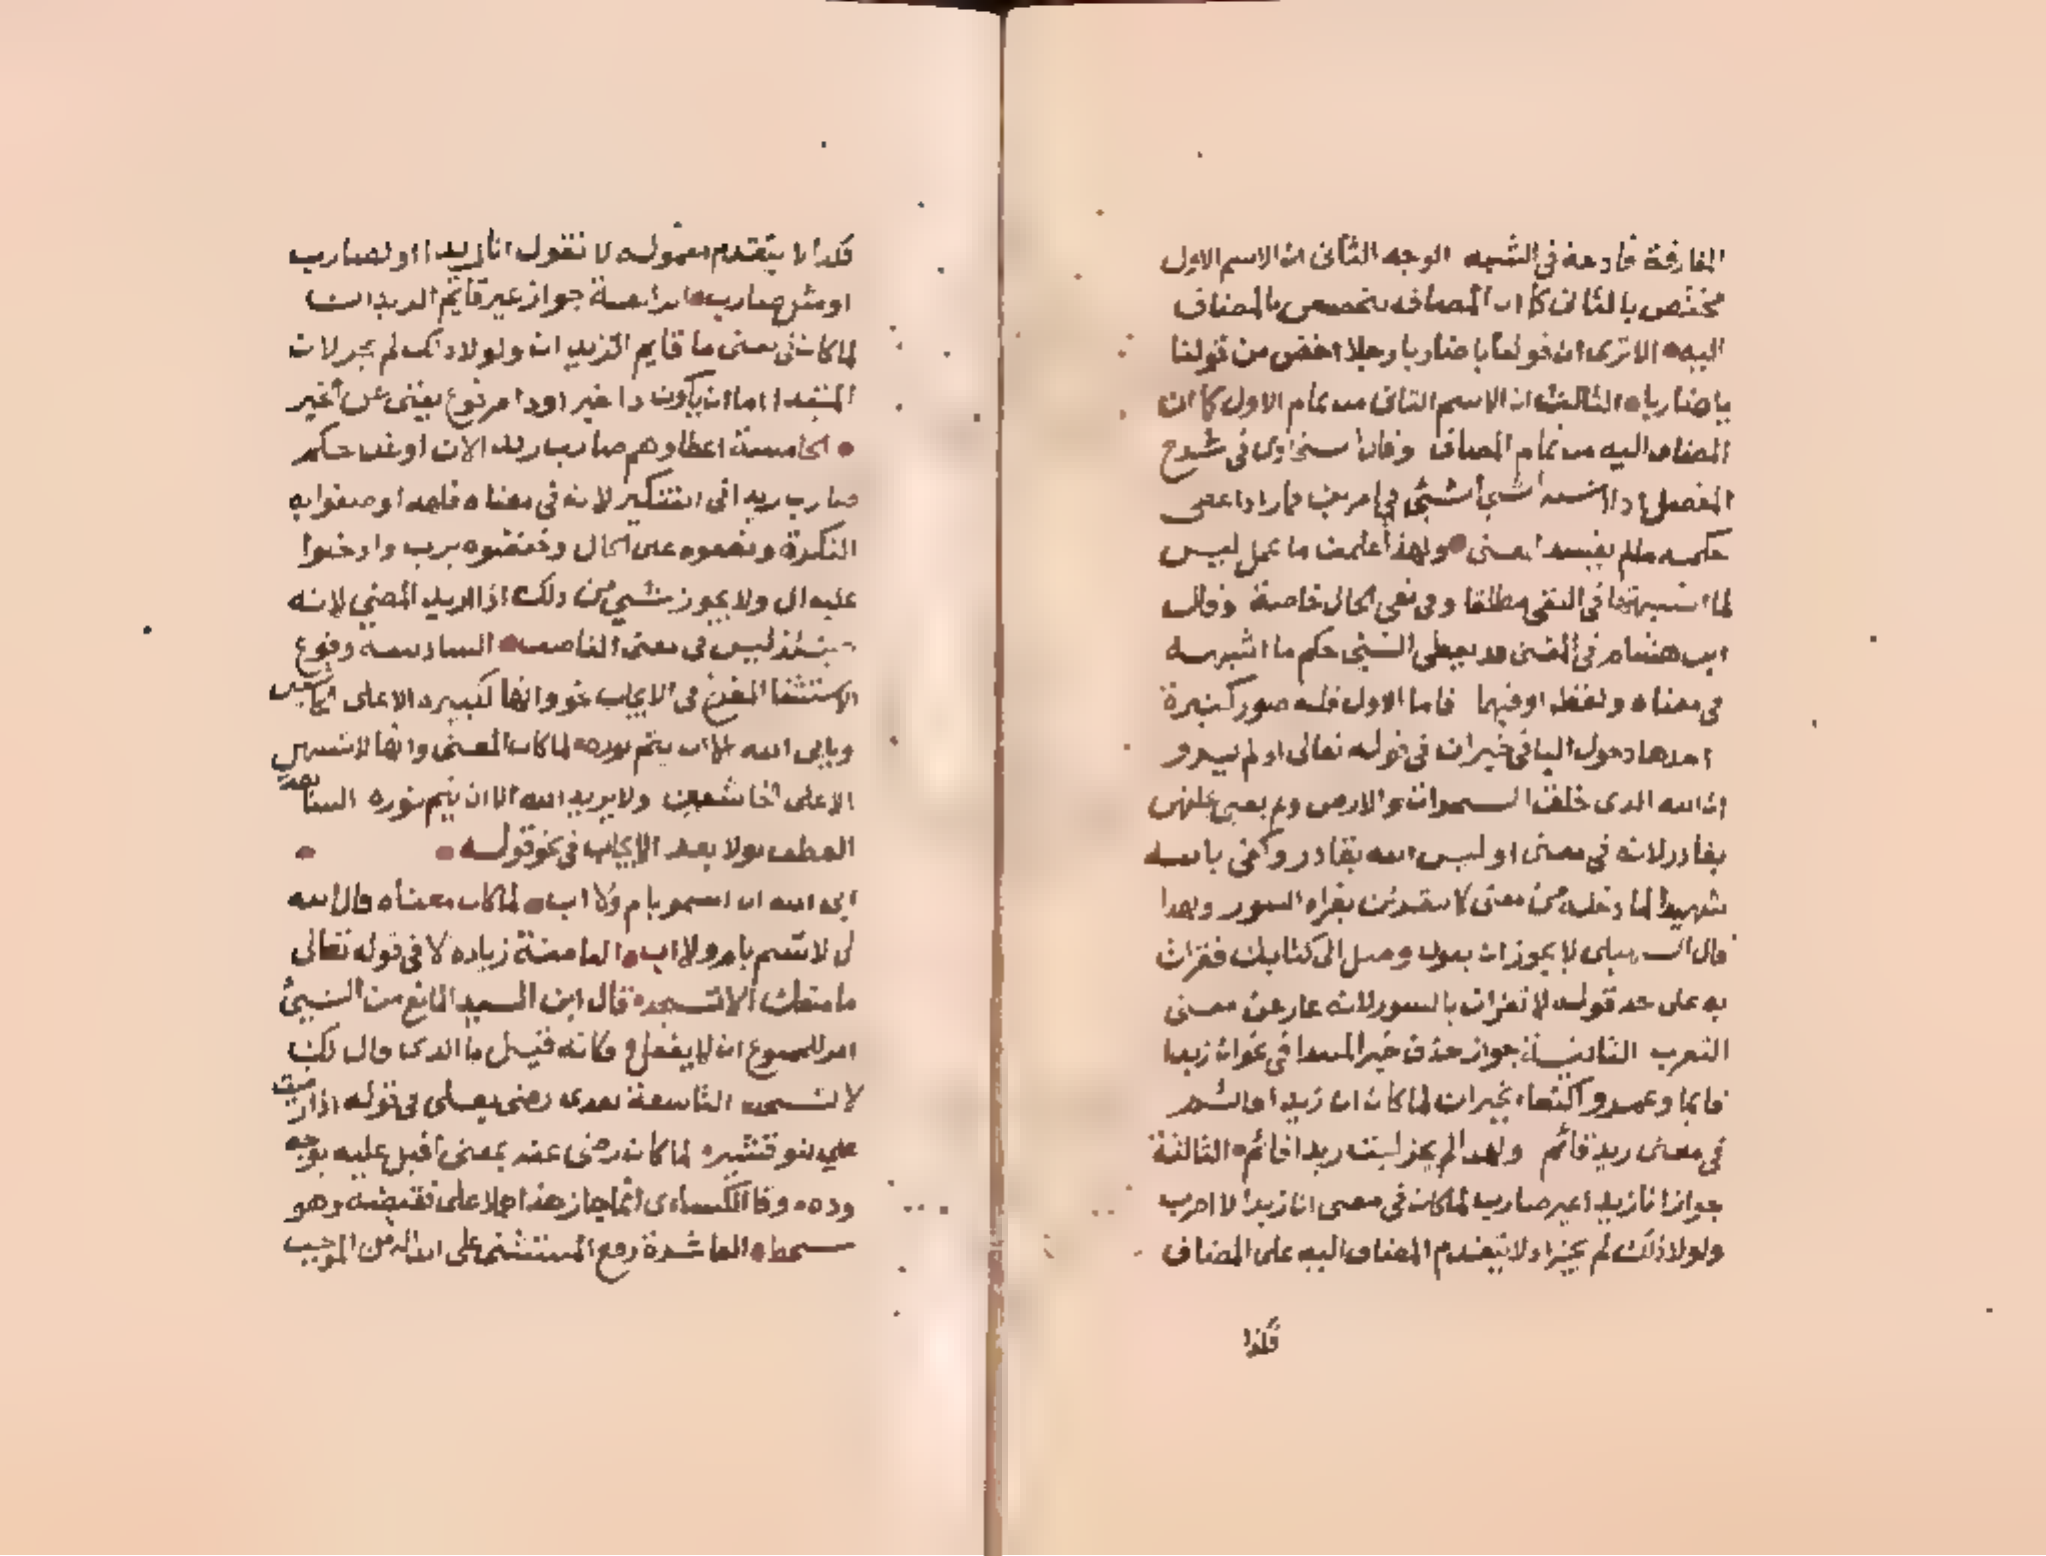 المفارقة قادحة في الشبه الوجه الثاني ان الاسم الاول
مختص بالثاني كما ان المضاف يتخصص بالمضاف
اليه الا ترى ان قولنا يا ضاربا رجلا اخص من قولنا
يا ضاربا الثالث ان الاسم الثاني من تمام الاول كما ان
المضاف اليه من تمام المضاف وقال السخاوي في شرح
المفصل اذا اشبه الشي الشي في امرين فما زاد اعطي
حكمه ما لم يفسد المعنى ولهذا اعلمت ما عمل ليس
لما اشبهتها في النفي مطلقا وفي نفي الحال خاصة وقال
ابن هشام في المغني قد يعطى الشي حكم ما اشبهه
في معناه ولفظه او فيهما فاما الاول فله صور كثيرة
احدها دخول البا في خبر ان في قوله تعالى اولم يروا
ان الله الذي خلق السموات والارض ولم يعي بخلقهن
بقادر لانه في معنى اوليس الله بقادر وكفى بالله
شهيدا لما دخله من معنى لا يتقربن بقراه السور ولهذا
قال السهيلي لا يجوز ان يقول وصل الى كتابك فقرات
به على حد قوله لا يقران بالسور لانه عار عن معنى
التقرب الثانية جواز حذف خبر المبتدا في نحو ان زيدا
قائما وعمرو اكتفاء بخبر ان لما كان ان زيدا قائم
في معنى زيد قائم ولهذا لم يجز ليت زيدا قائم الثالثة
جواز انا زيدا غير ضارب لما كان في معنى انا زيدا لا اضرب
ولولا ذلك لم يجز اذ لا يتقدم المضاف اليه على المضاف
فكذا
فكذا لا يتقدم معموله لا تقول انا زيدا اول ضارب
او مثل ضارب الرابعة جواز غير قائم الزيدان
لما كان في معنى ما قايم الزيدان ولولا ذلك لم يجز لان
المبتدا اما ان يكون ذا خبر او ذا مرفوع يغني عن الخبر
الخامسة اعطاوهم ضارب زيد الان او غدا حكم
ضارب زيدا في التنكير لانه في معناه فلهذا وصفوا به
النكرة ونصبوه على الحال وخفضوه برب وادخلوا
عليه ال ولا يجوز شي من ذلك اذا اريد المضي لانه
حينئذ ليس في معنى الناصب السادسة وقوع
الاستثنا المفرغ في الايجاب نحو وانها لكبيرة الا على الخاشعين
ويابى الله الا ان يتم نوره لما كان المعنى وانها لا تسهل
الا على الخاشعين ولا يريد الله الا ان يتم نوره السابعة
العطف بولا بعد الايجاب في نحو قوله
ابى الله ان اسمو بام ولا اب لما كان معناه قال الله
لي لا تسم بام ولا اب الثامنة زيادة لا في قوله تعالى
ما منعك الا تسجد قال ابن السيد المانع من الشي
امر للممنوع ان لا يفعل وكانه قيل ما الذي قال لك
لا تسجد التاسعة تعدي رضي بعلى في قوله اذا رضيت
علي بنو قشير لما كان رضي عنه بمعنى اقبل عليه بوجه
وده وقال الكسائي انما جاز هذا حملا على نقيضه وهو
سخط العاشرة رفع المستثنى على ابداله من الموجب